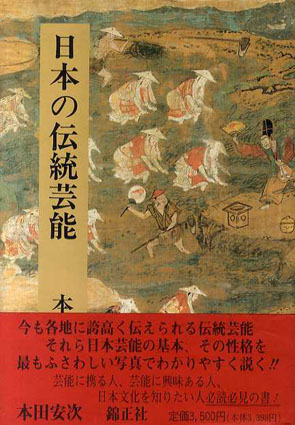 日本の伝統芸能
本
今も各地に誇高く伝えられる伝統芸能
それら日本芸能の基本、その性格を
最もふさわしい写真でわかりやすく説く!!
芸能に携る人、芸能に興味ある人、
日本文化を知りたい人必読必見の書!
本田安次 錦正社 定価3,500円(本体3,398円)